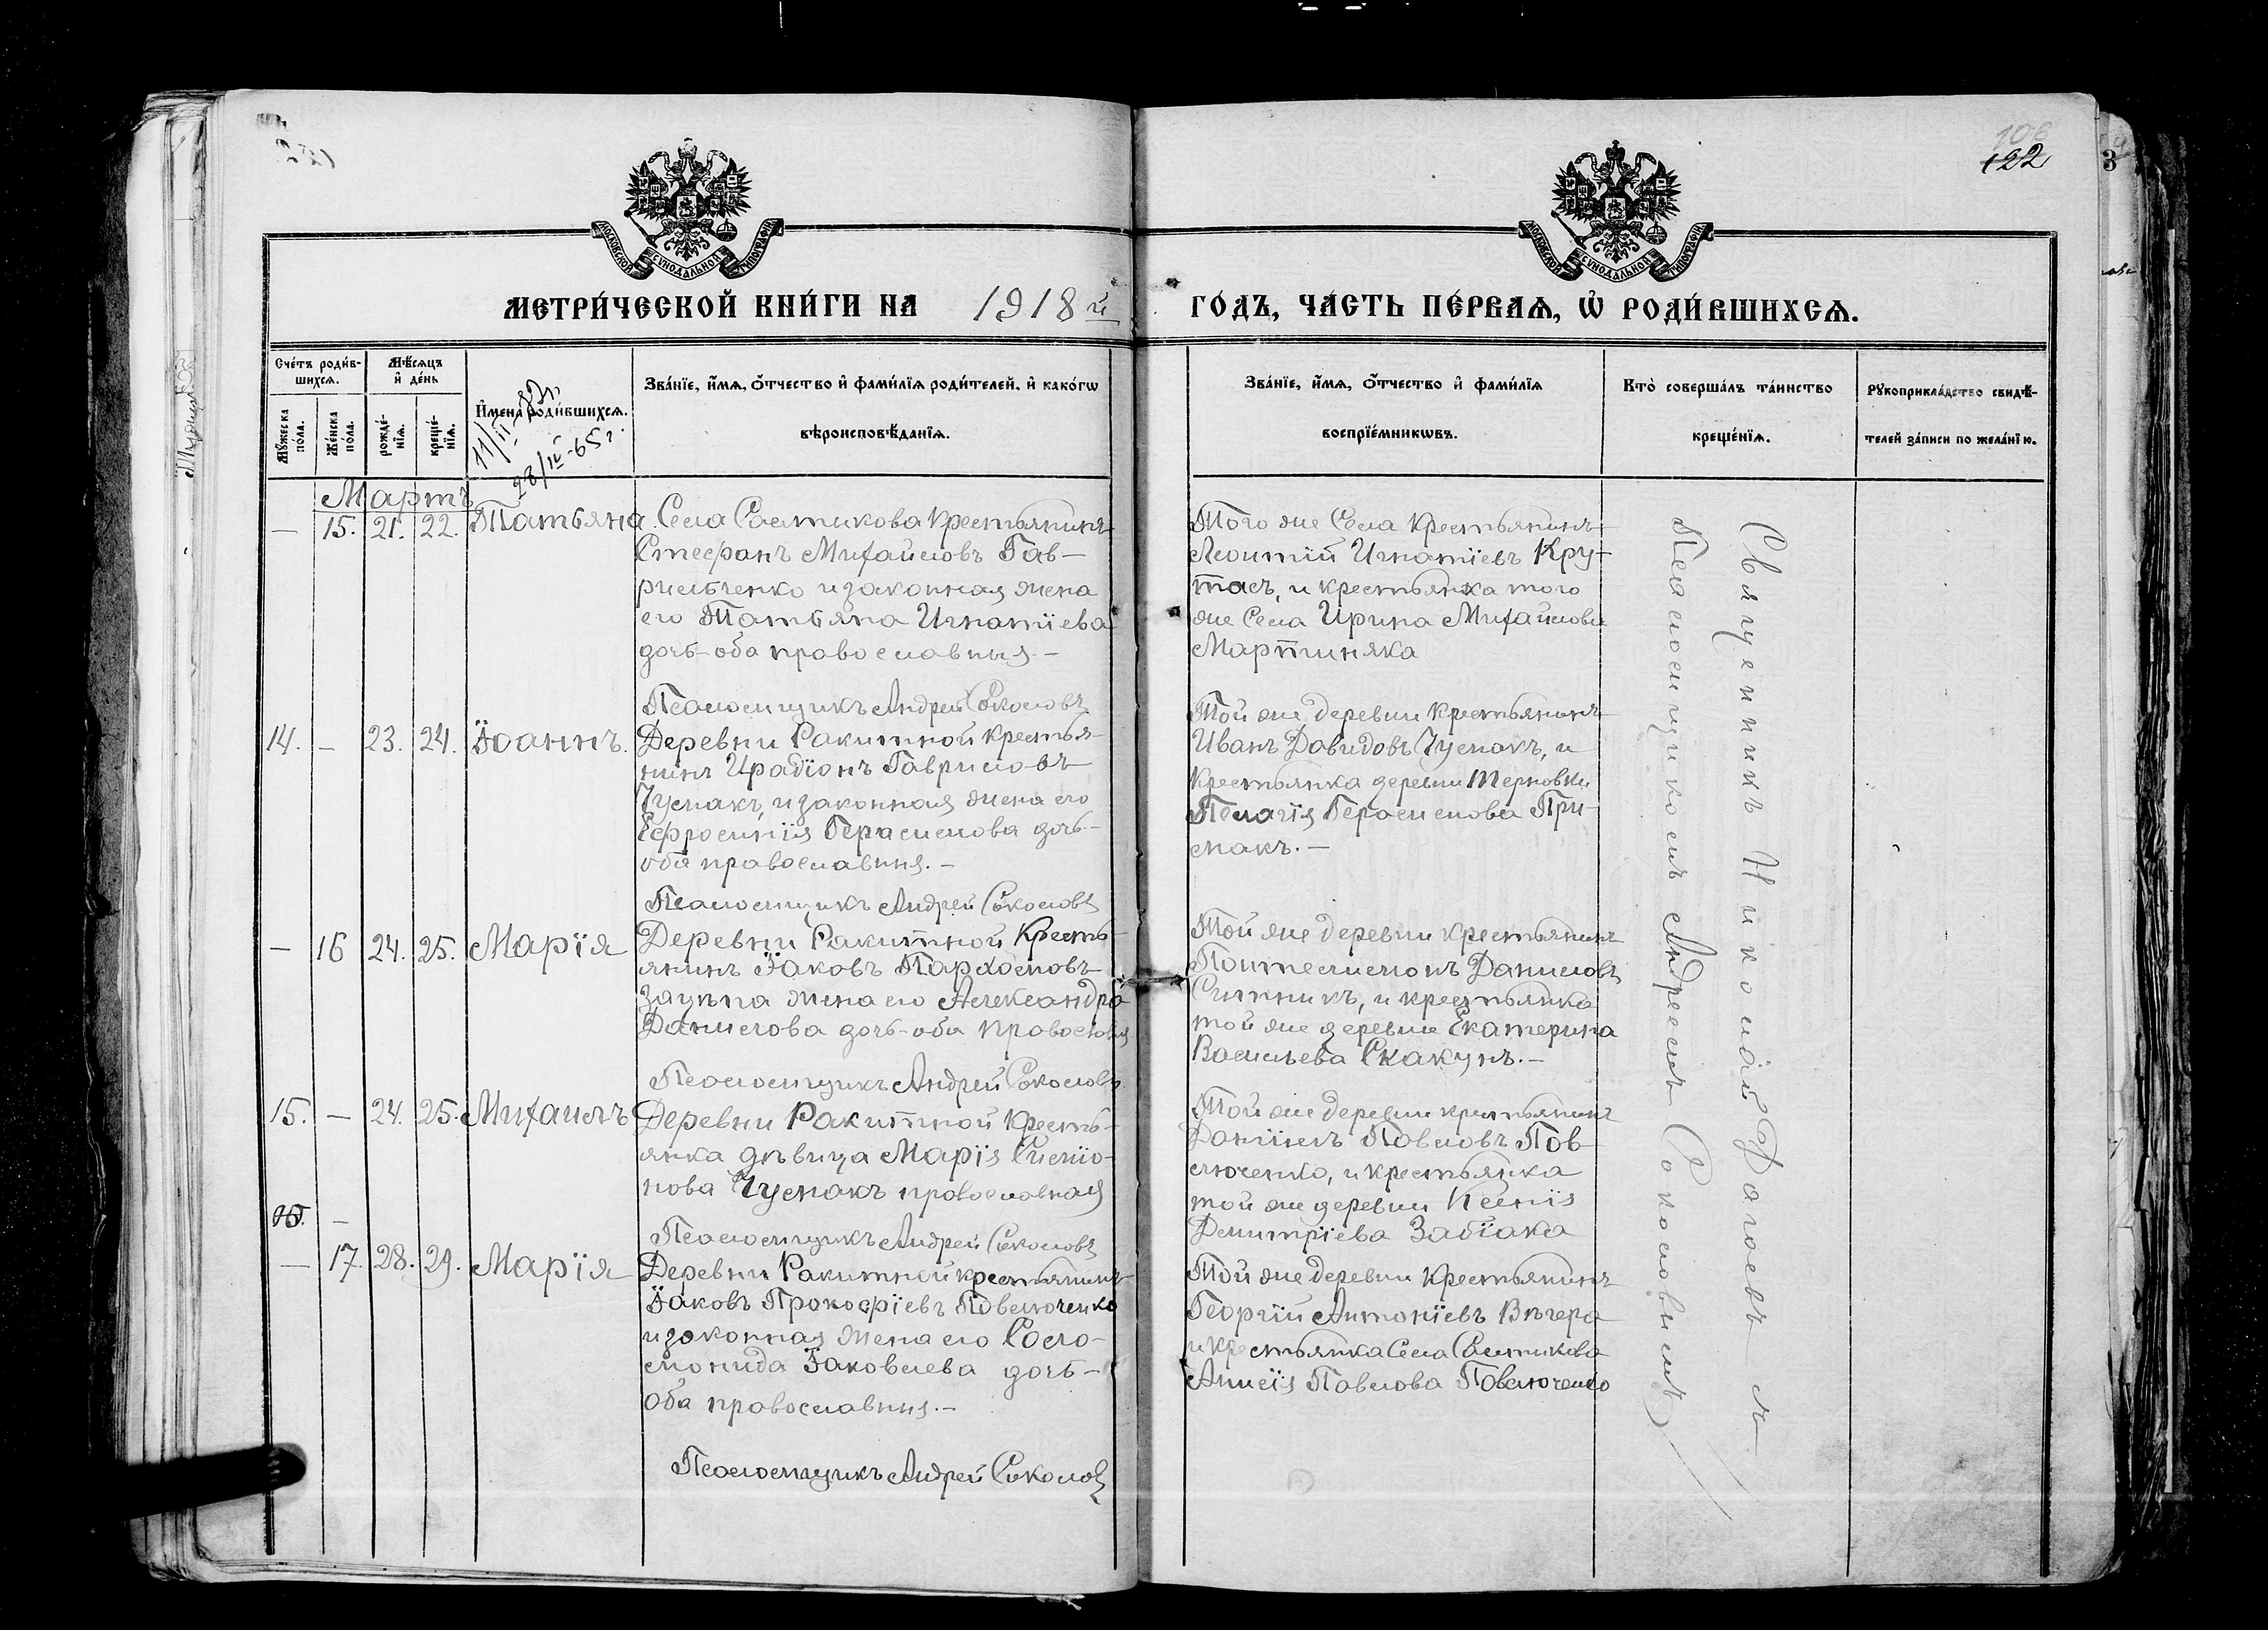 108
122
3
МОСКОВСКОЙ СѴНОДАЛЬНОЙ ТИПОГРАФІИ
МОСКОВСКОЙ СѴНОДАЛЬНОЙ ТИПОГРАФІИ
МЕТРИ́ЧЕСКОЙ КНИ́ГИ НА 1918 й ГО́ДЪ, ЧА́СТЬ ПЕ́РВАЯ, Ѡ РОДИ́ВШИХСЯ.
Сче́тъ роди́в-
шихся.
Мѣ́сяцъ
и де́нь
Му́жеска
по́ла.
Же́нска
по́ла.
рожде́-
нія.
креще́-
нія.
И́мена роди́вшихся.
28/IV-65г.
Зва́ніе, и́мя, о́тчество и фами́лія роди́телей, и како́гѡ
вѣроисповѣ́данія.
Зва́ніе, и́мя, о́тчество и фами́лія
воспріе́мникѡвъ.
Кто̀ соверша́лъ та́инство
креще́нія.
Рукоприкла́дство свидѣ́-
телей за́писи по жела́нію.
Мартъ
— 15. 21. 22. Татьяна.
Села Салтикова крестьянинъ
Стефанъ Михайловъ Гав-
рильченко и законная жена
его Татьяна Игнатіева
дочь-оба православныя.-
Псаломщикъ Андрей Соколовъ
Того же Села крестьянинъ
Леонтій Игнатіевъ Кру-
тась, и крестьянка того
же Села Ирина Михайлова
Мартиняка
14. — 23. 24. Іоаннъ.
Деревни Ракитной крестья-
нинъ Ирадіонъ Гавриловъ
Чумакъ, и законная жена его
Ефросинія Герасимова дочь-
оба православныя.-
Псаломщикъ Андрей Соколовъ
Той же деревни крестьянинъ
Иванъ Давидовъ Чумакъ, и
крестьянка деревни Терновки
Пелагія Герасимова При-
макъ.-
— 16 24. 25. Марія
Деревни Ракитной Кресть-
янинъ Іаковъ Пархомовъ
Зацепа жена его Александра
Данилова дочь-оба православн
Псаломщикъ Андрей Соколовъ
Той же деревни крестьянинъ
Пантелимонъ Даниловъ
Ситникъ, и крестьянка
той же деревни Екатерина
Васильева Скакунъ.-
15. — 24. 25. Михаилъ
Деревни Ракитной Кресть-
янка дѣвица Марія Симио-
нова Чумакъ православная
Псаломщикъ Андрей Соколовъ
Той же деревни крестьянинъ
Даніилъ Павловъ Пав-
люченко, и крестьянка
той же деревни Ксенія
Димитріева Забіака
— 17. 28. 29. Марія
Деревни Ракитной крестьянинъ
Іаковъ Прокофіевъ Павлюченко
и законная жена его Соло-
монида Іаковлева дочь-
оба православныя.-
Псаломщикъ Андрей Соколовъ
Той же деревни Крестьянинъ
Георгій Антоніевъ Вѣчера
и крестьянка Села Салтикова
Анисія Павлова Павлюченко
Священникъ Николай
Псаломщикомъ Андреемъ Соколовымъ